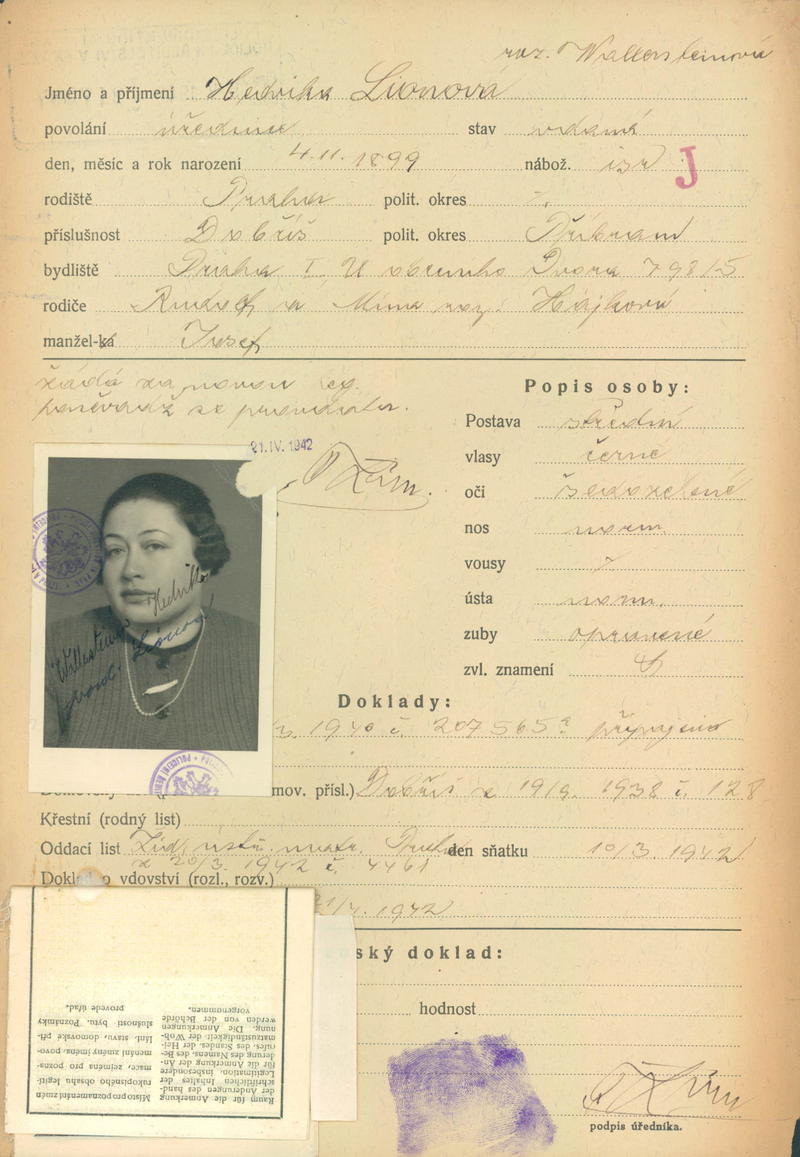 roz. Wallersteinová
Jméno a příjmení Hedvika Lionová
povolání úřednice stav vdaná
den, měsíc a rok narození 4.11.1899 nábož. isr J
rodiště Praha polit. okres
příslušnost Dobříš polit. okres Příbram
bydliště Praha I, U obecního Dvora 798/5
rodiče Rudolf a Mina roz. Hájková
manžel-ka Josef
žádá za novou leg.
poněvadž se provdala.
Popis osoby:
Postava střední
21. IV. 1942
vlasy černé
oči šedozelené
nos norm.
vousy
ústa norm.
zuby opravené
zvl. znamení
Wallersteinová Hedvika
provd. Lionová
Doklady:
1940 č. 207565 připojeno
mov. přísl.) Dobříš z 19/9. 1938 č. 128
Křestní (rodný list)
Oddací list Žid. ústř. matr. Praha den sňatku 10/3. 1942
z 20/3. 1942 č. 4461
Doklad o vdovství (rozl., rozv.)
21/4. 1942
ský doklad:
hodnost
Raum für die Anmerkung der Änderungen des handschriftlichen Inhaltes der Legitimation, insbesondere für die Anmerkung der Änderung des Namens, des Berufes, des Standes, der Heimatzuständigkeit, der Wohnung. Die Anmerkungen werden von der Behörde vorgenommen.
Místo pro poznamenání změn rukopisného obsahu legitimace, zejména pro poznamenání změny jména, povolání, stavu, domovské příslušnosti, bytu. Poznámky provede úřad.
podpis úředníka.